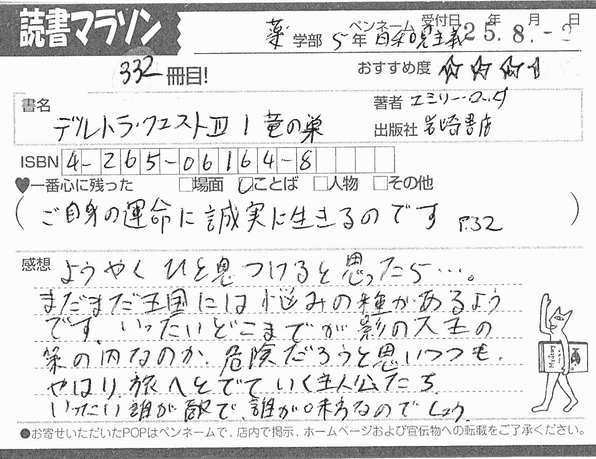 読書マラソン
薬 学部 5年 ペンネーム 自和党主義 受付日 25年 8.月 -2日
332 冊目! おすすめ度 ☆☆☆
書名 デルトラ・クエストⅢ 1 竜の巣
著者 エミリー・ロッダ
出版社 岩崎書店
ISBN 4-265-06164-8
♥一番心に残った □場面 □ことば □人物 □その他
(ご自身の運命に誠実に生きるのです P.32)
感想 ようやくひと息つけると思ったら…。
まだまだ王国には悩みの種があるよう
です。いったいどこまでが影の大王の
策の内なのか、危険だろうと思いつつも、
やはり旅へとでていく主人公たち
いったい誰が敵で誰が味方なのでしょう。
●お寄せいただいたPOPはペンネームで、店内で掲示、ホームページおよび宣伝物への転載をご了承ください。